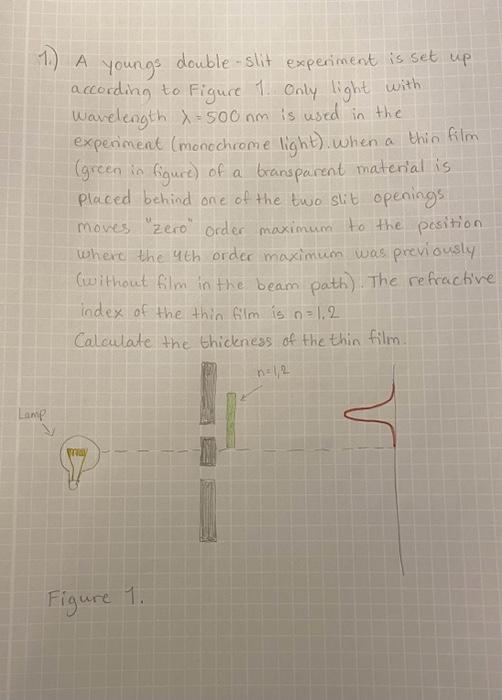 1.) A youngs double-slit experiment is set up
according to Figure 1. Only light with
wavelength λ = 500 nm is used in the
experiment (monochrome light). when a thin film
(green in figure) of a transparent material is
placed behind one of the two slit openings
moves "zero" order maximum to the position
where the 4th order maximum was previously
(without film in the beam path). The refractive
index of the thin film is n=1,2
Calculate the thickness of the thin film.
n=1,2
Lamp
Figure 1.